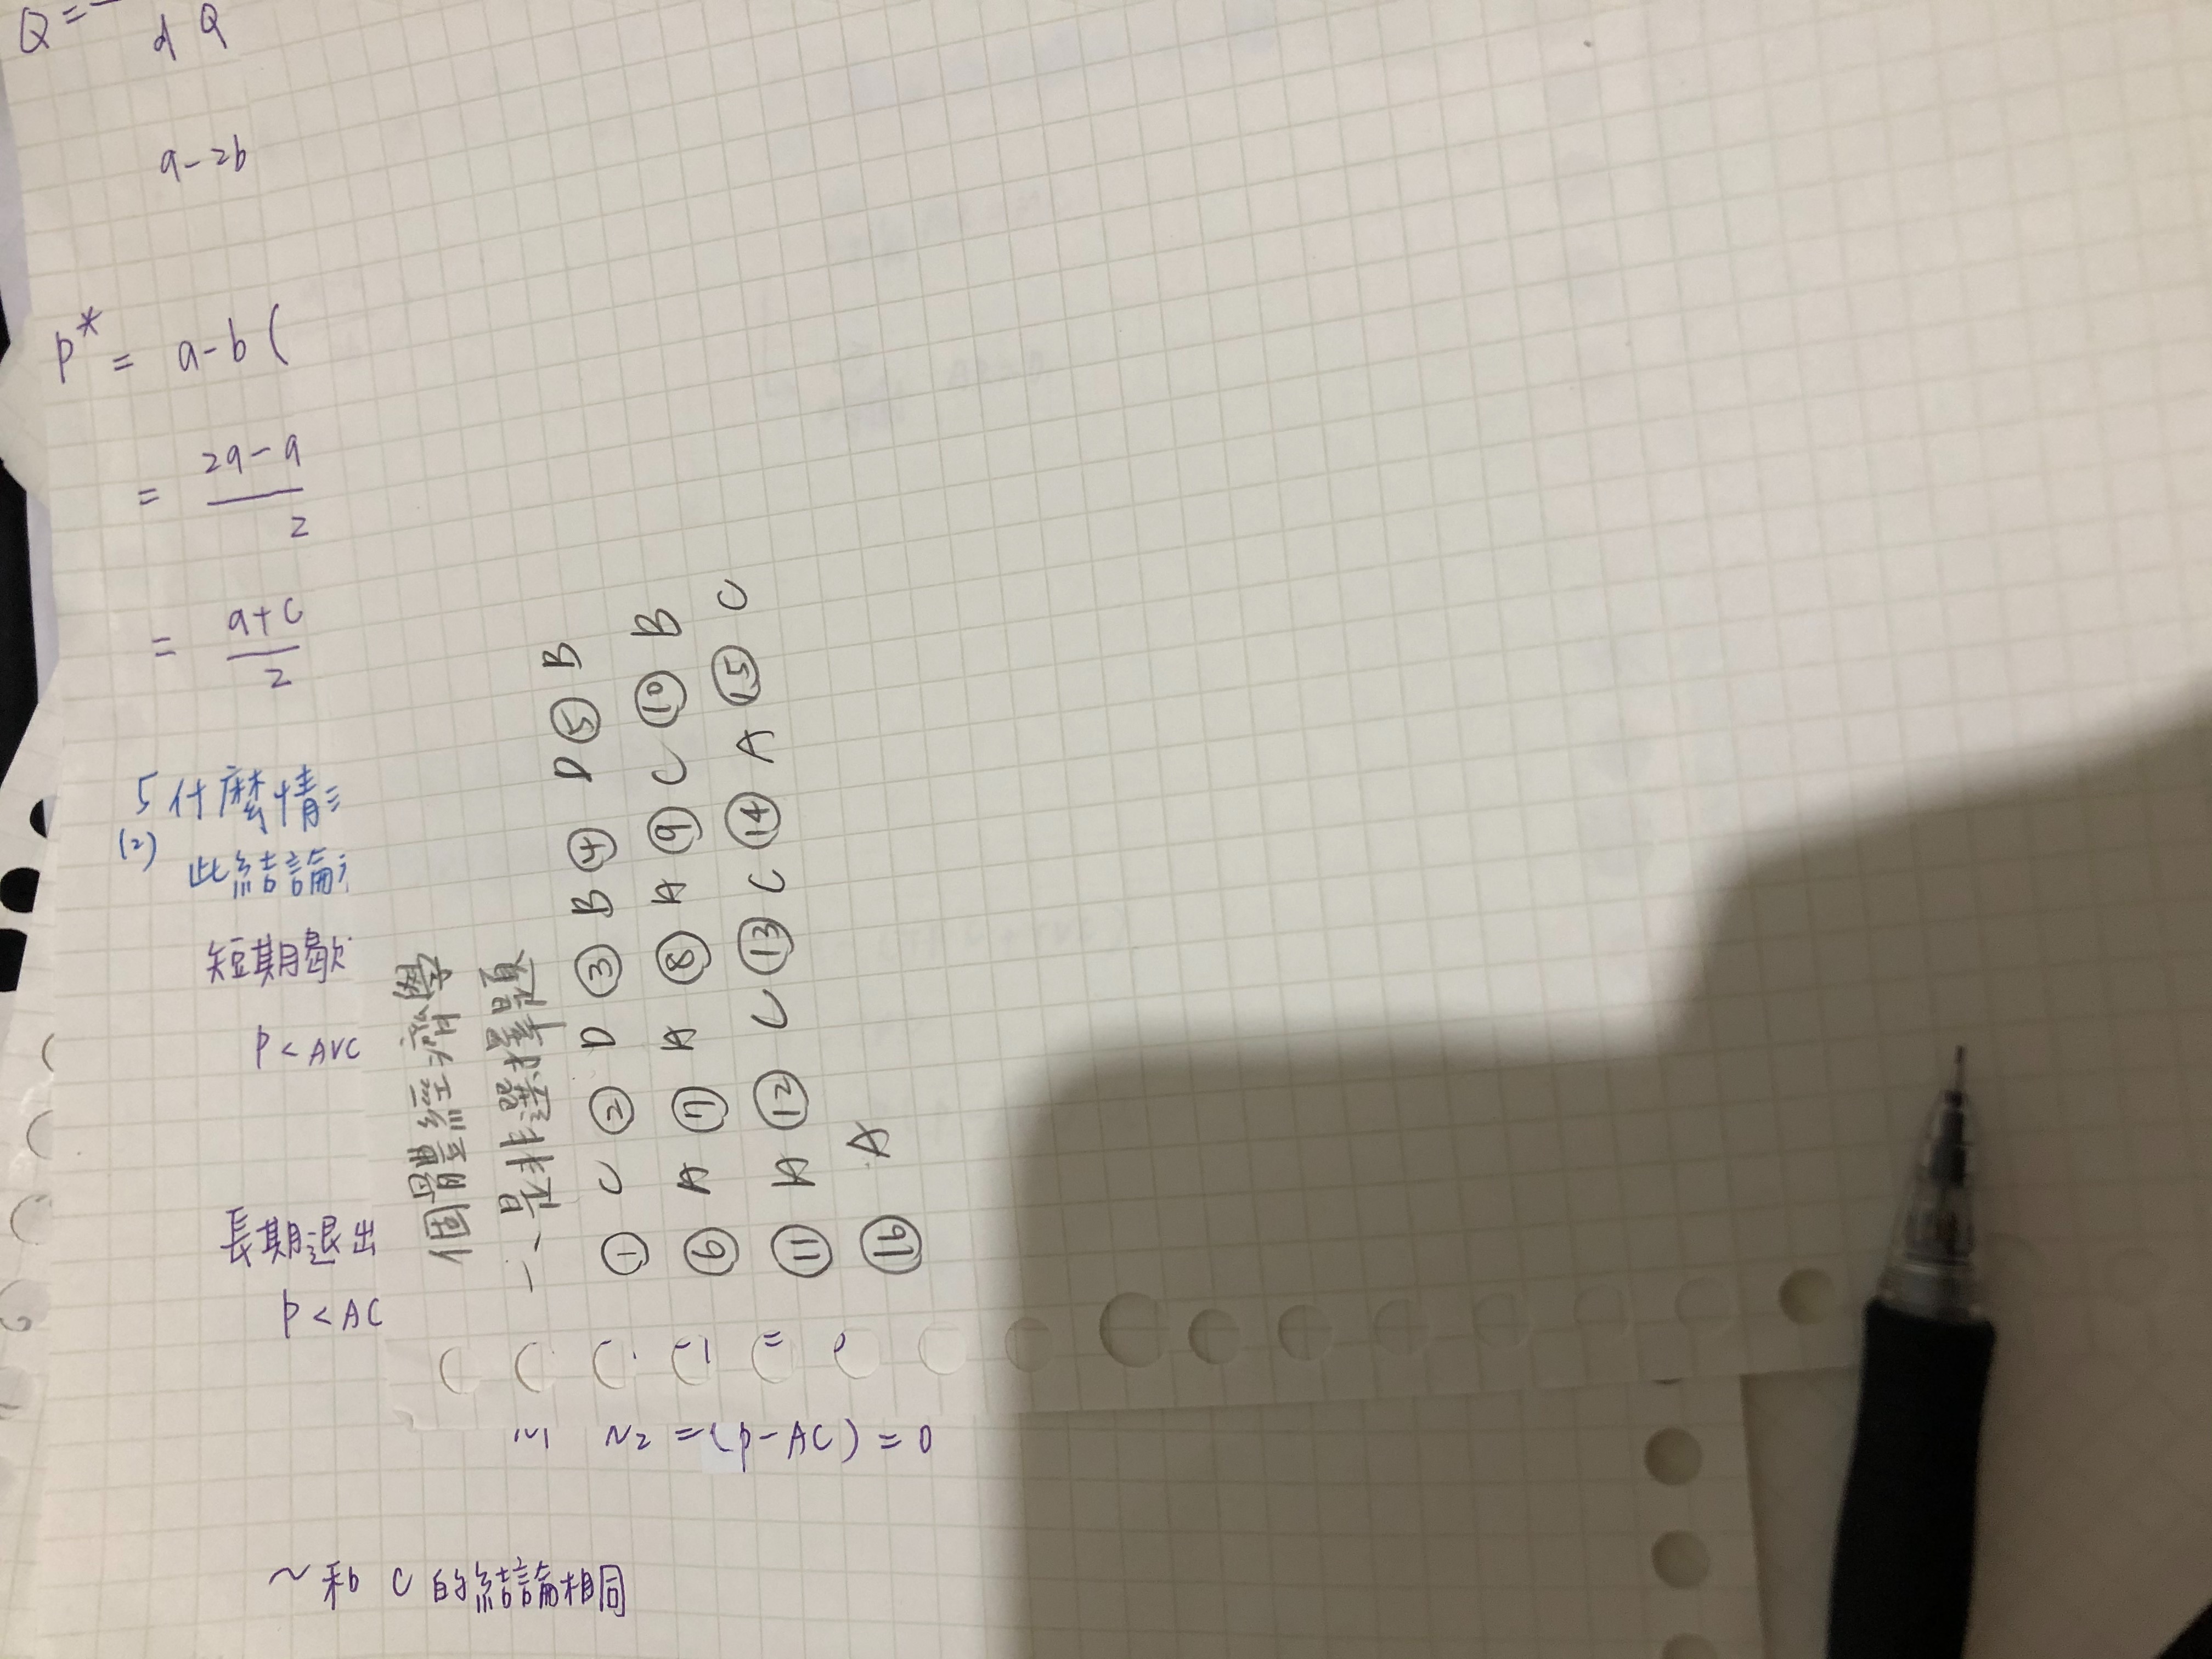 個體經濟學
一、是非選擇題
① C ② D ③ B ④ D ⑤ B
⑥ A ⑦ A ⑧ A ⑨ C ⑩ B
⑪ A ⑫ C ⑬ C ⑭ A ⑮ C
⑯ A
a-2b
p* = a-b(
= 2a-a / 2
= a+c / 2
什麼情
(2) 此結論
短期歇
P < AVC
長期退出
P < AC
π2 = (p-AC) = 0
~ 和 C 的結論相同